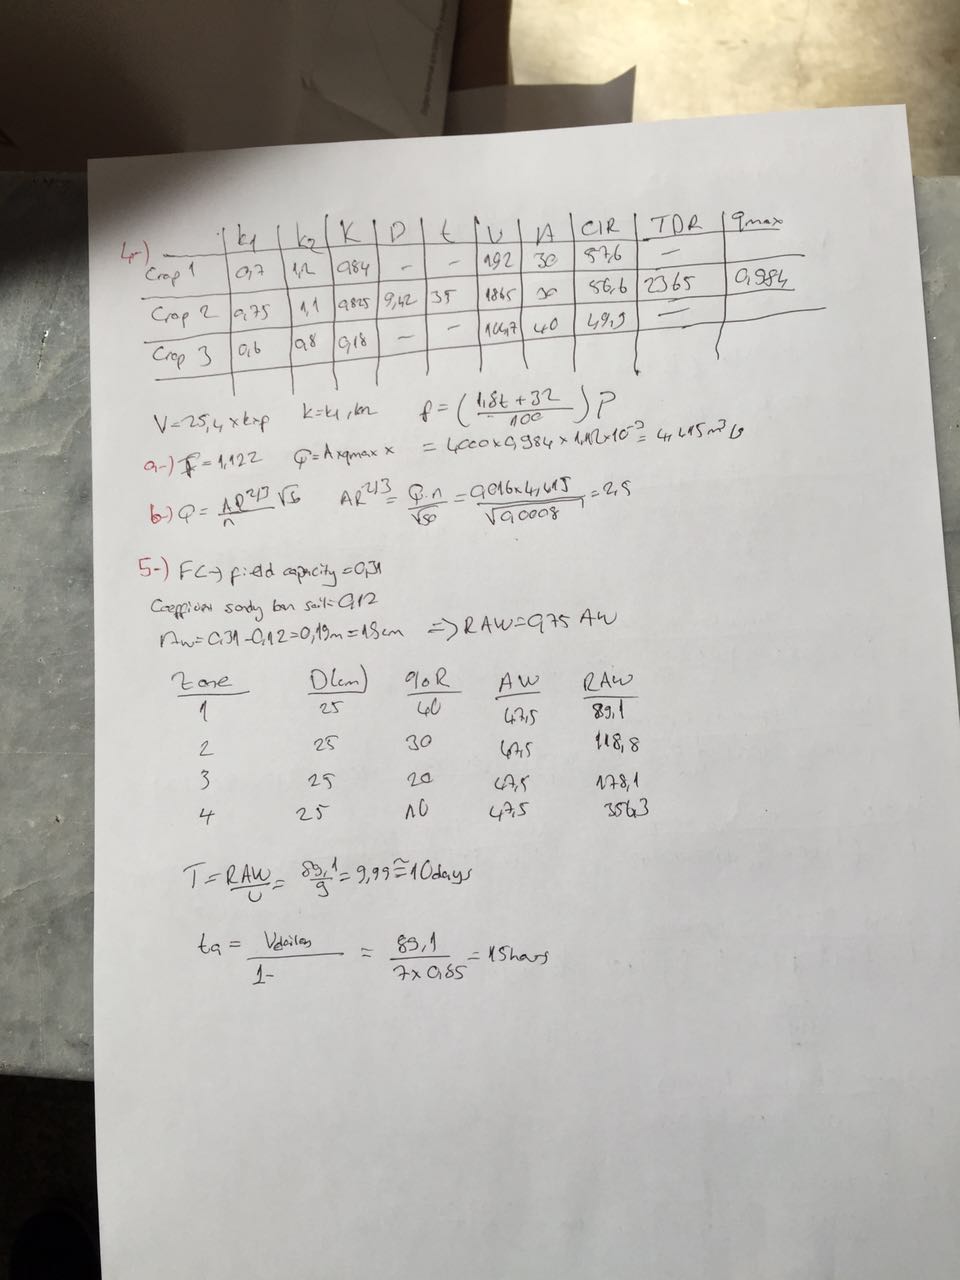 4-) k1 k2 K P t U A CIR TDR qmax
Crop 1 0,7 1,2 0,84 - - 192 30 57,6 -
Crop 2 0,75 1,1 0,825 9,42 35 1865 30 56,6 2365 0,984
Crop 3 0,6 0,8 0,18 - - 40 49,9 -
U=25,4 x kxp k=k1.k2 f=(1,8t+32/100)P
a-) F=1,122 Q=Axqmax x = 4000x0,984x1,12x10^-3= 4,415m³/s
b-) Q= AR^2/3 √S/n AR^2/3= Q.n/√S0 = 0,016x4,415/√0,0008 =2,5
5-) FC→ field capacity=0,31
sandy soil=0,12
Aw=0,31-0,12=0,19m=19cm => RAW=0,75 AW
Zone D(cm) %R AW RAW
1 25 40 47,5 89,1
2 25 30 47,5 118,8
3 25 20 47,5 178,1
4 25 10 47,5 356,3
T=RAW/U= 89,1/9=9,99≅10days
ta= /1- = 89,1/7x0,85 =15hours